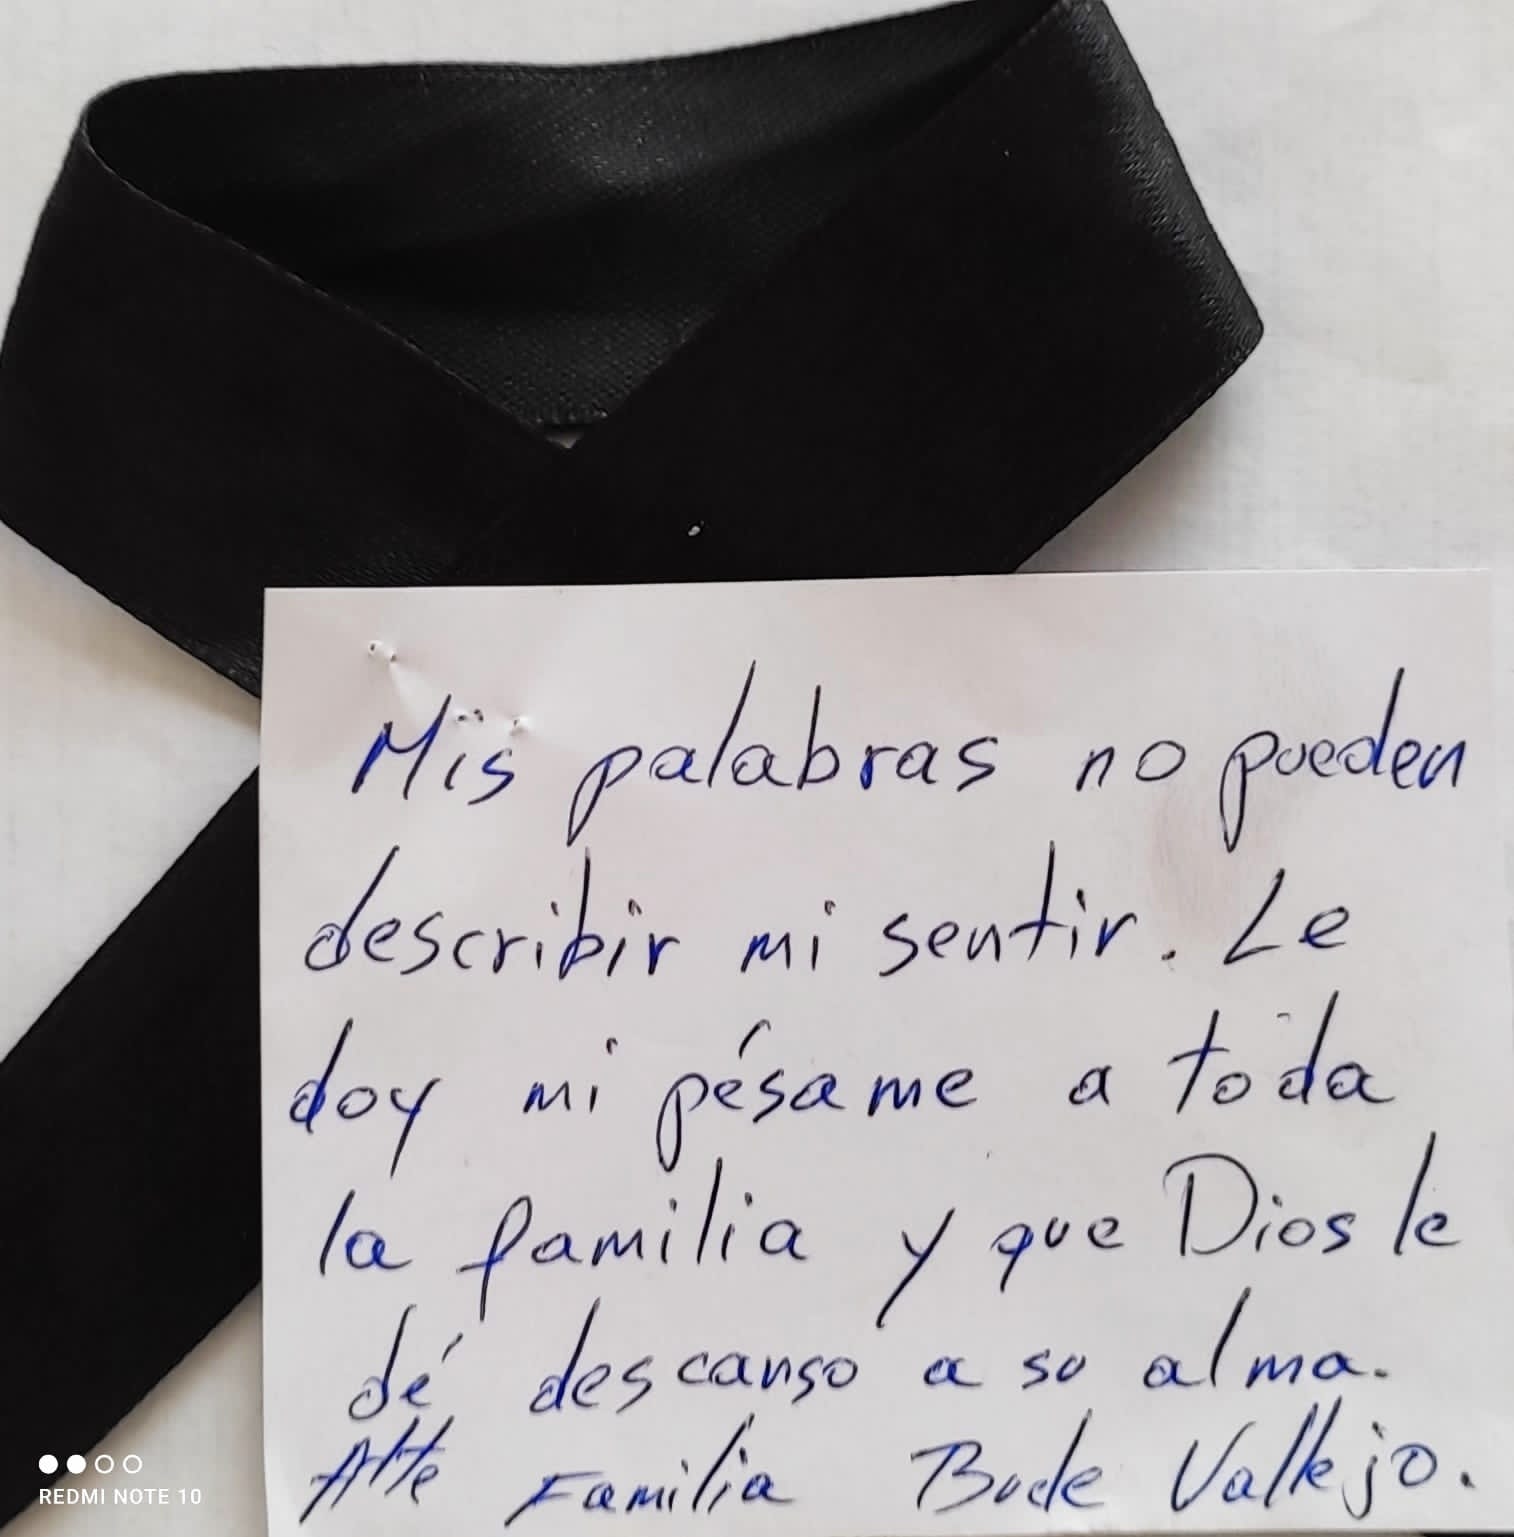 Mis palabras no pueden
describir mi sentir. Le
doy mi pésame a toda
la familia y que Dios le
dé descanso a su alma.
Atte Familia Bude Vallejo.
REDMI NOTE 10